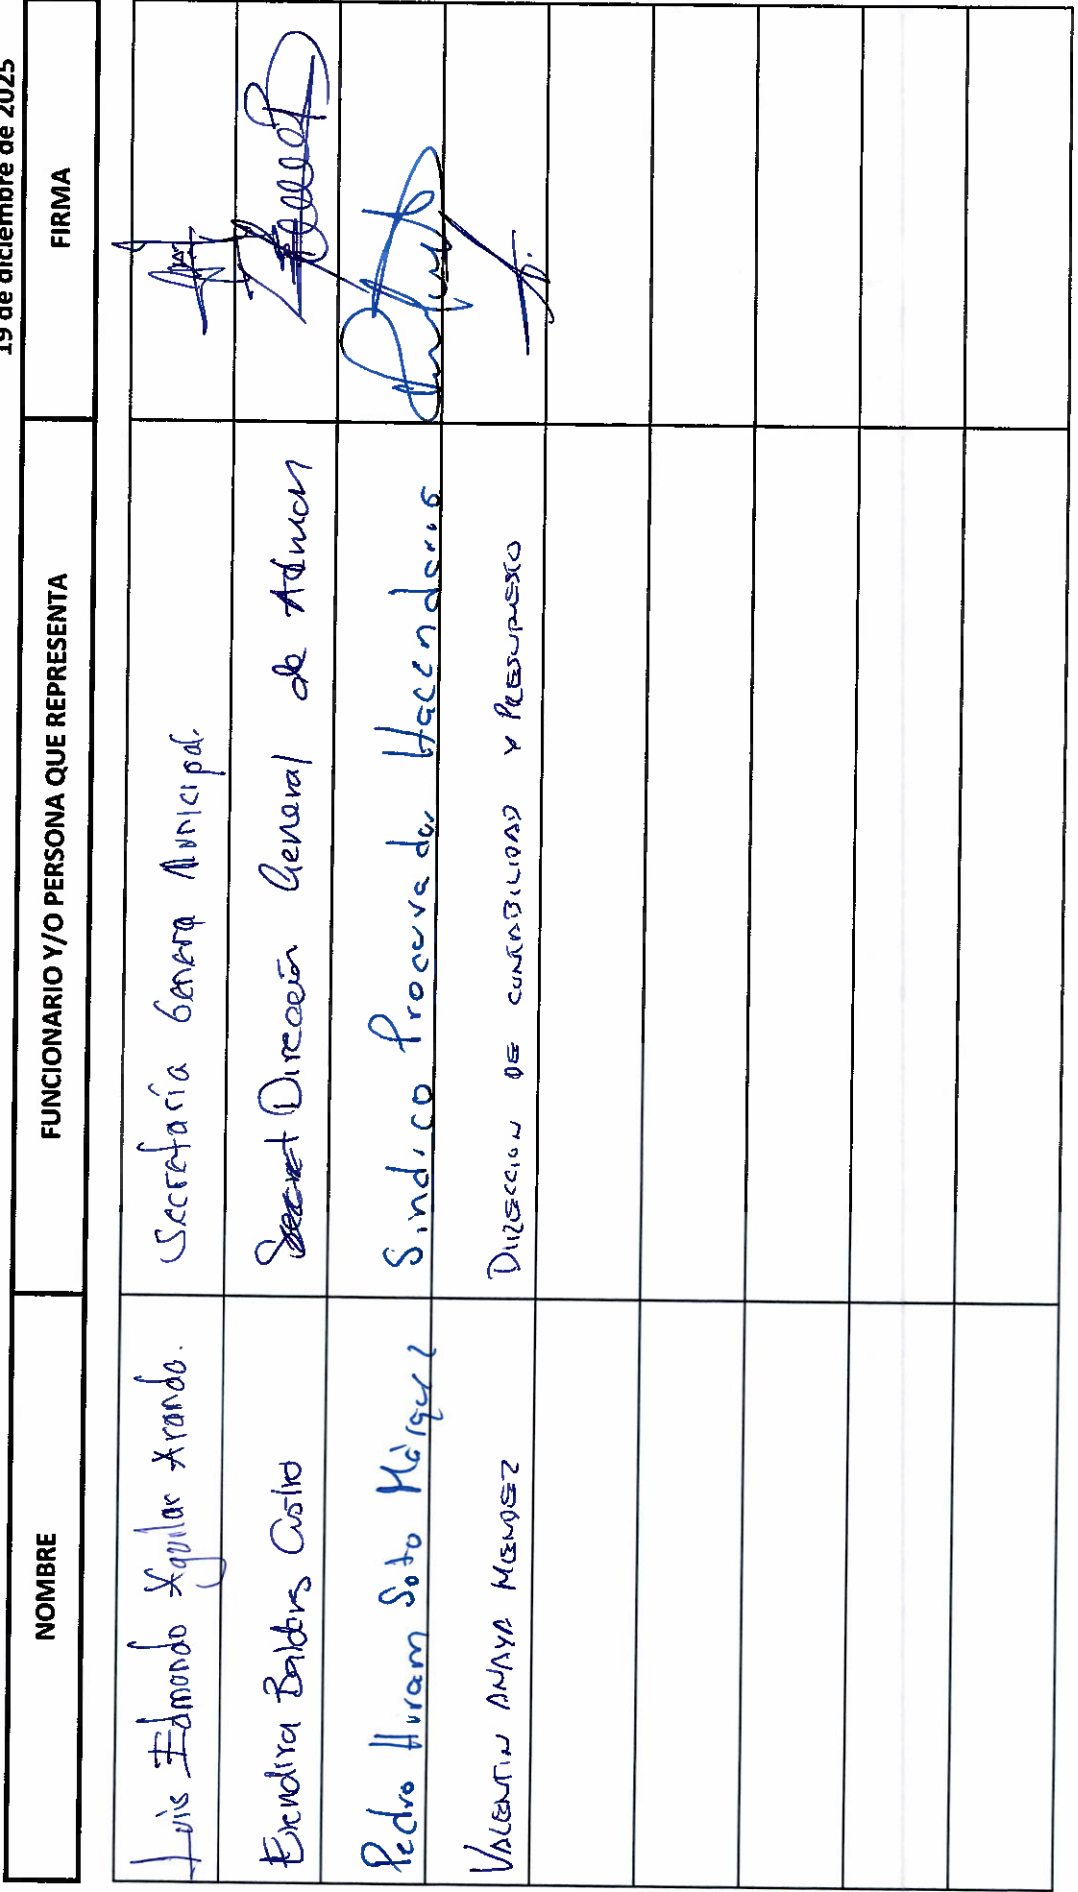 19 de diciembre de 2025
NOMBRE FUNCIONARIO Y/O PERSONA QUE REPRESENTA FIRMA
Luis Edmundo Aguilar Aranda. Secretaría Genera Municipal.
Erendira Balderas Castro Dirección General de Admon
Pedro Huram Soto Márquez Sindico Procurador Hacendario
VALENTIN ANAYA MENDEZ DIRECCION DE CONTABILIDAD Y PRESUPUESTO